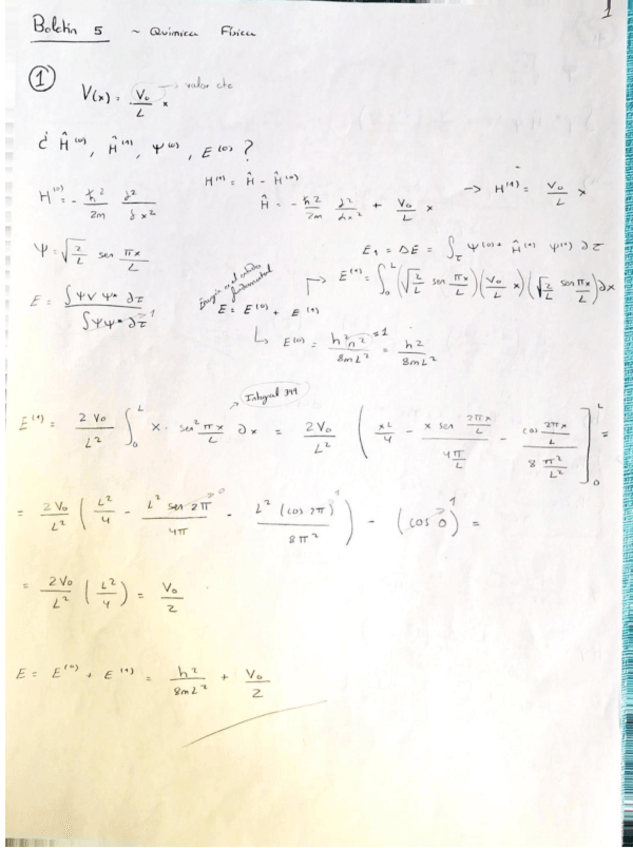 1
Boletín 5 ~ Química Física
① V(x) = V₀/L x → valor cte
¿ Ĥ⁽⁰⁾, Ĥ⁽¹⁾, Ψ⁽⁰⁾, E⁽⁰⁾ ?
H⁽¹⁾ = Ĥ - Ĥ⁽⁰⁾
H⁽⁰⁾ = - ħ²/2m ∂²/∂x²
Ĥ = - ħ²/2m ∂²/∂x² + V₀/L x → H⁽¹⁾ = V₀/L x
Ψ = √(2/L) sen πx/L
E₁ = ΔE = ∫τ Ψ⁽⁰⁾* Ĥ⁽¹⁾ Ψ⁽⁰⁾ ∂τ
E = ∫ΨVΨ* ∂τ / ∫ΨΨ* ∂τ → 1
Energía en el estado fundamental
E = E⁽⁰⁾ + E⁽¹⁾
→ E⁽¹⁾ = ∫₀ᴸ (√(2/L) sen πx/L) (V₀/L x) (√(2/L) sen πx/L) ∂x
↳ E⁽⁰⁾ = h²n²/8mL² = h²/8mL²
=1
→ Integral
E⁽¹⁾ = 2V₀/L² ∫₀ᴸ x · sen² πx/L ∂x = 2V₀/L² ( x²/4 - x sen 2πx/L / 4π/L - cos 2πx/L / 8 π²/L² ]₀ᴸ =
= 2V₀/L² ( L²/4 - L² sen 2π→0 / 4π - L² (cos 2π)→1 / 8π² ) - (cos 0→1) =
= 2V₀/L² ( L²/4 ) = V₀/2
E = E⁽⁰⁾ + E⁽¹⁾ = h²/8mL² + V₀/2